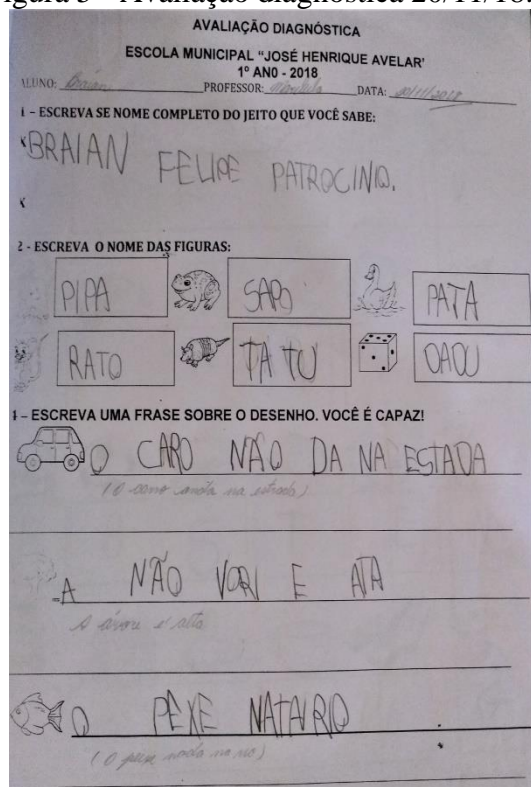 igura 3 – Avaliação diagnóstica 20/11/18.
AVALIAÇÃO DIAGNÓSTICA
ESCOLA MUNICIPAL “JOSÉ HENRIQUE AVELAR’
1º ANO - 2018
ALUNO: Braian PROFESSOR: DATA: 20/11/2018
1 – ESCREVA SE NOME COMPLETO DO JEITO QUE VOCÊ SABE:
BRAIAN FELIPE PATROCINIO.
2 - ESCREVA O NOME DAS FIGURAS:
PIPA SAPO PATA
RATO TATU DADU
– ESCREVA UMA FRASE SOBRE O DESENHO. VOCÊ É CAPAZ!
O CARO NÃO DA NA ESTADA
(O carro anda na estrada)
A NÃO VORI E ATA
A árvore é alta
O PEXE NATAIRIO
(O peixe nada no rio)